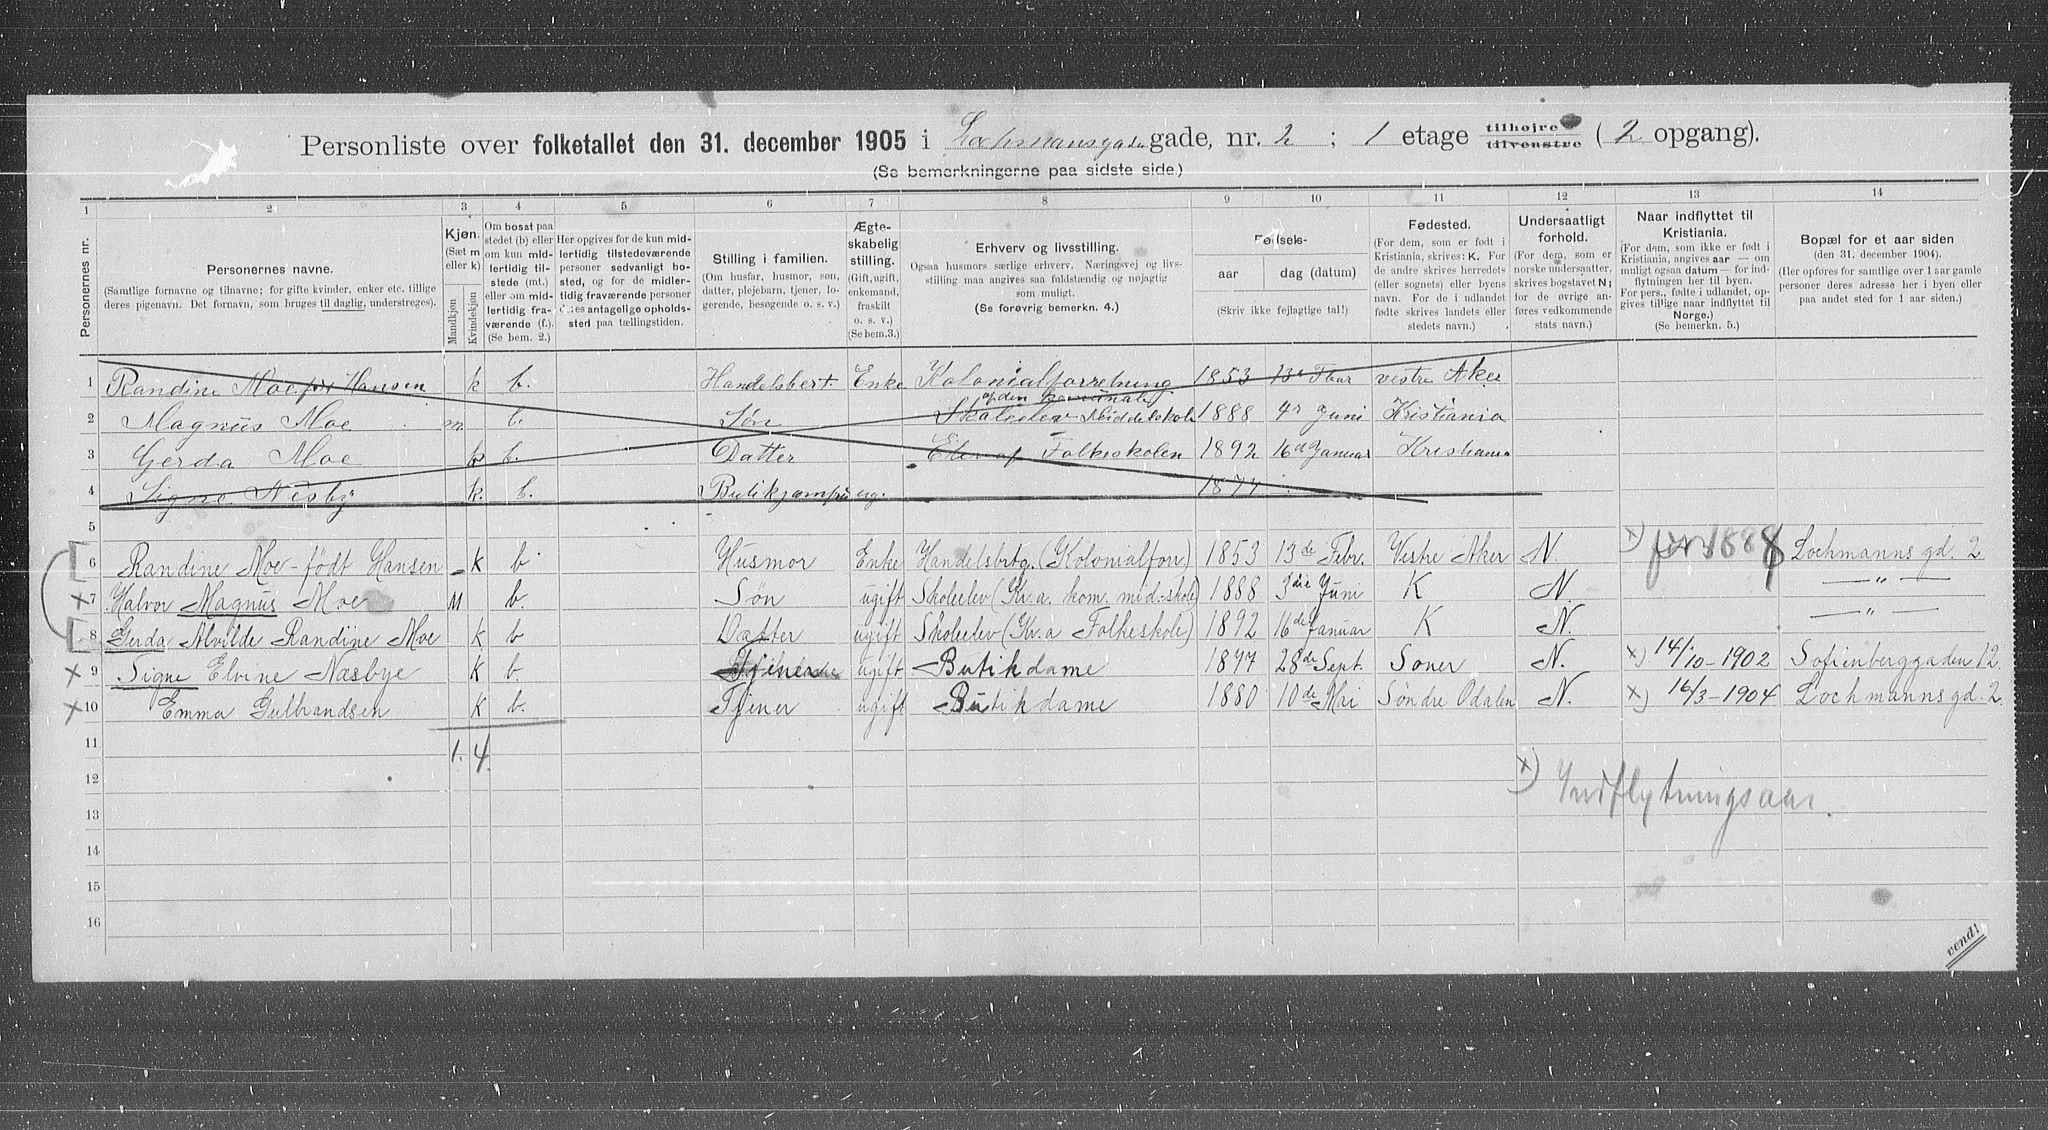 Personliste over folketallet den 31. december 1905 i Lochmannsgaden gade, nr. 2 ; 1 etage tilhøjre tilvenstre ( 2 opgang).
(Se bemerkningerne paa sidste side.)
1 2 3 4 5 6 7 8 9 10 11 12 13 14
Personernes nr.
Personernes navne.
(Samtlige fornavne og tilnavne; for gifte kvinder, enker etc. tillige deres pigenavn. Det fornavn, som bruges til daglig, understreges).
Kjøn.
(Sæt m eller k).
Mandkjøn
Kvindekjøn
Om bosat paa stedet (b) eller om kun midlertidig tilstede (mt.) eller om midlertidig fraværende (f.).
(Se bem. 2.)
Her opgives for de kun midlertidig tilstedeværende personer sedvanligt bosted, og for de midlertidig fraværende personer deres antagelige opholdssted paa tællingstiden.
Stilling i familien.
(Om husfar, husmor, søn, datter, plejebarn, tjener, logerende, besøgende o. s. v.)
Ægteskabelig stilling.
(Gift, ugift, enkemand, fraskilt o. s. v.)
(Se bem.3.)
Erhverv og livsstilling.
Ogsaa husmors særlige erhverv. Næringsvej og livsstilling maa angives saa fuldstændig og nøjagtig som muligt.
(Se forøvrig bemerkn. 4.)
Fødsels-
aar dag (datum)
(Skriv ikke fejlagtige tal!)
Fødested.
(For dem, som er født i Kristiania, skrives: K. For de andre skrives herredets (eller sognets) eller byens navn. For de i udlandet fødte skrives landets eller stedets navn.)
Undersaatligt forhold.
(For dem, som er norske undersaatter, skrives bogstavet N; for de øvrige anføres vedkommende stats navn.)
Naar indflyttet til Kristiania.
(For dem, som ikke er født i Kristiania, angives aar — om muligt ogsaa datum — for indflytningen her til byen. For pers., fødte i udlandet, opgives tillige naar indflyttet til Norge.)
(Se bemerkn. 5.)
Bopæl for et aar siden
(den 31. december 1904).
(Her opføres for samtlige over 1 aar gamle personer deres adresse her i byen eller paa andet sted for 1 aar siden.)
1 Randine Moe Hansen k b. Handelsbert. Enke Kolonialforretning 1853 vestre Aker
2 Magnus Moe m b. Søn Skoleelev Middelskole 1888 4 Juni Kristiania
3 Gerda Moe k b. Datter Elev af Folkeskolen 1892 16 Januar Kristiania
4 Signe Næsby k. b. ug. 1877
5
6 Randine Moe - født Hansen k b Husmor Enke Handelsbrtg. (Kolonialforr.) 1853 13de Febr. Vestre Aker N. x) før 1888 Lochmanns gd. 2
7 x Halvor Magnus Moe M b. Søn ugift Skoleelev (Kr.a. kom. mid.-skole) 1888 3die Juni K N. — " —
8 Gerda Alvilde Randine Moe K b Datter ugift Skoleelev (Kr.a Folkeskole) 1892 16de Januar K N. — " —
9 x Signe Elvine Næsbye K b. Tjener ugift Butikdame 1877 28de Sept. Soner N. x) 14/10-1902 Sofienberggaden 12.
10 x Emma Gulbrandsen K b. Tjener ugift Butikdame 1880 10de Mai Søndre Odalen N. x) 16/3-1904 Lochmanns gd. 2.
11 1. 4.
12 x) Indflytningsaar.
13
14
15
16
vend!